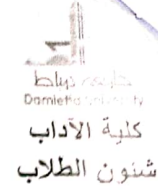 جامعة دمياط
Damietta University
كلية الآداب
شئون الطلاب